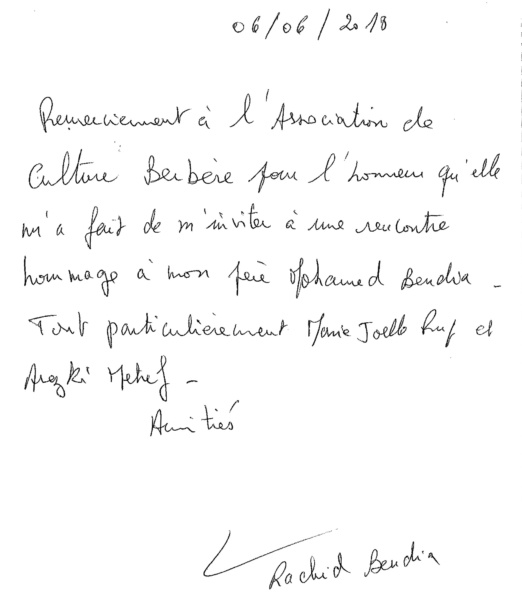 06/06/2018
Remerciement à l'Association de
Culture Berbère pour l'honneur qu'elle
m'a fait de m'inviter à une rencontre
hommage à mon père Mohamed Bendia -
Tout particulièrement Marie Joelle Ruf et
Arezki Metref -
Amitiés
Rachid Bendia